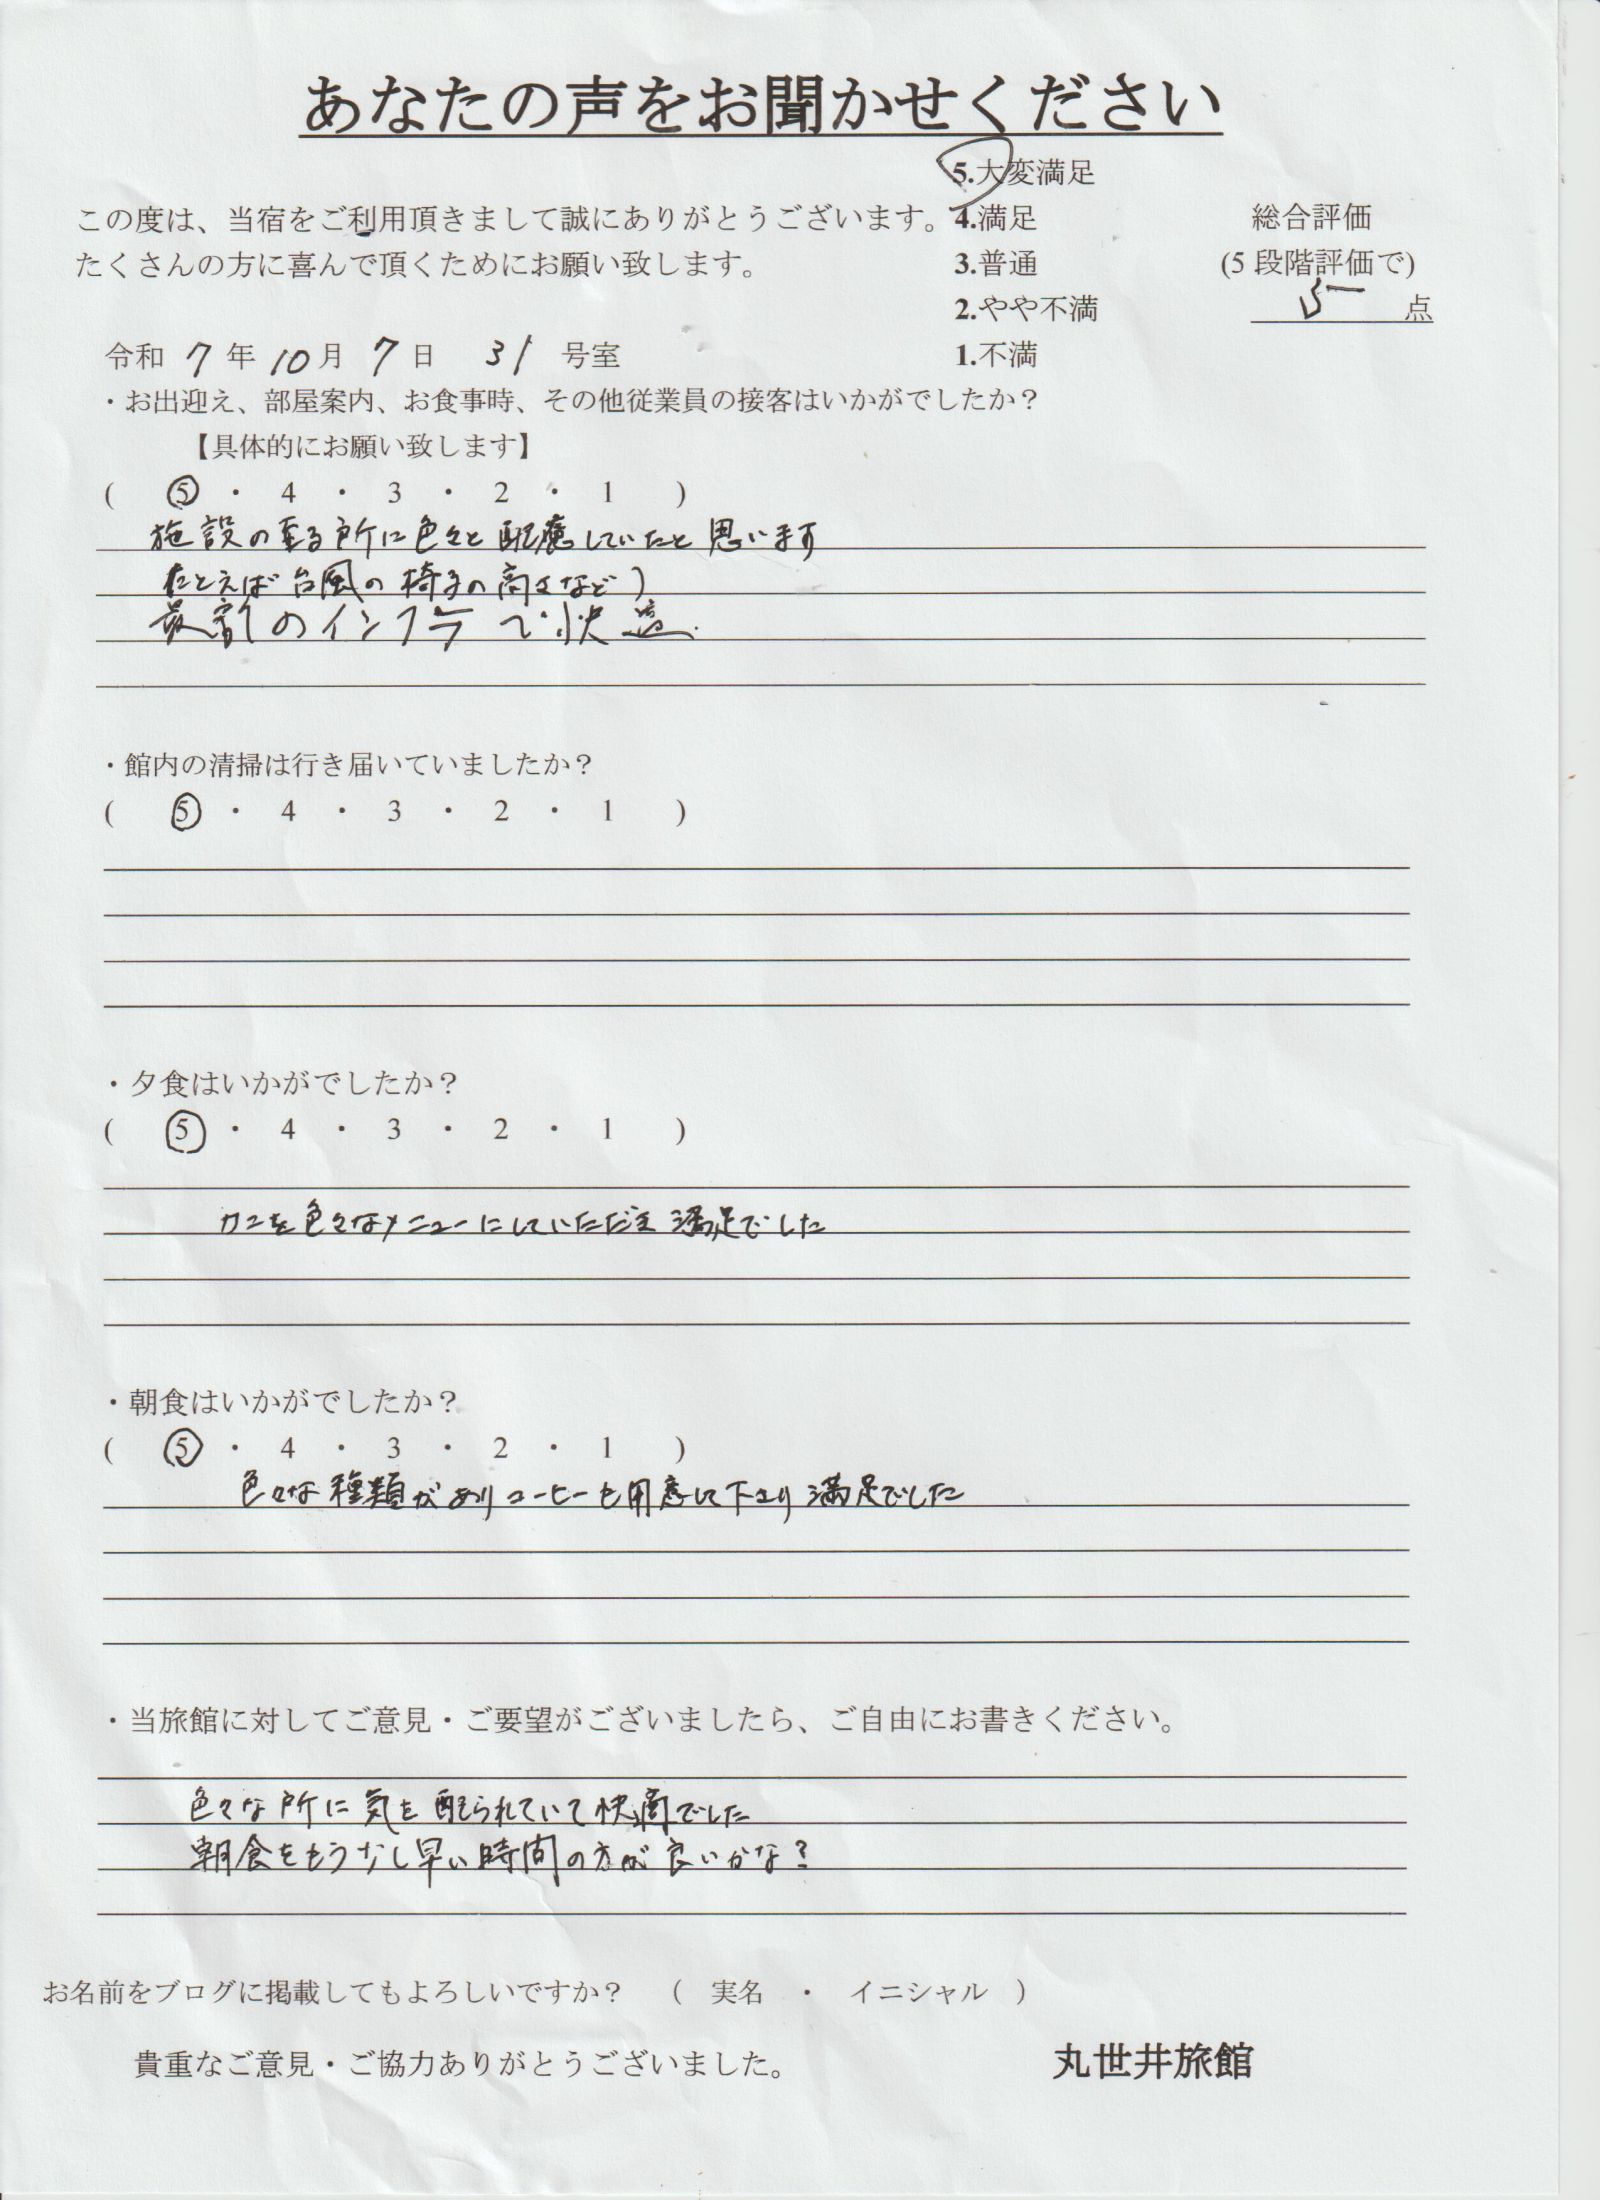 あなたの声をお聞かせください
5.大変満足
この度は、当宿をご利用頂きまして誠にありがとうございます。 4.満足 総合評価
たくさんの方に喜んで頂くためにお願い致します。 3.普通 (5段階評価で)
2.やや不満 5 点
令和 7 年 10 月 7 日 31 号室 1.不満
・お出迎え、部屋案内、お食事時、その他従業員の接客はいかがでしたか？
【具体的にお願い致します】
( 5 ・ 4 ・ 3 ・ 2 ・ 1 )
施設の至る所に色々と配慮していたと思います
たとえば 台風の椅子の高さなど)
最新のインフラで快適.
・館内の清掃は行き届いていましたか？
( 5 ・ 4 ・ 3 ・ 2 ・ 1 )
・夕食はいかがでしたか？
( 5 ・ 4 ・ 3 ・ 2 ・ 1 )
カニを色々なメニューにしていただき 満足でした
・朝食はいかがでしたか？
( 5 ・ 4 ・ 3 ・ 2 ・ 1 )
色々な種類があり コーヒーも用意して下さり 満足でした
・当旅館に対してご意見・ご要望がございましたら、ご自由にお書きください。
色々な所に気を配られていて快適でした
朝食をもう少し早い時間の方が良いかな？
お名前をブログに掲載してもよろしいですか？ ( 実名 ・ イニシャル )
貴重なご意見・ご協力ありがとうございました。 丸世井旅館